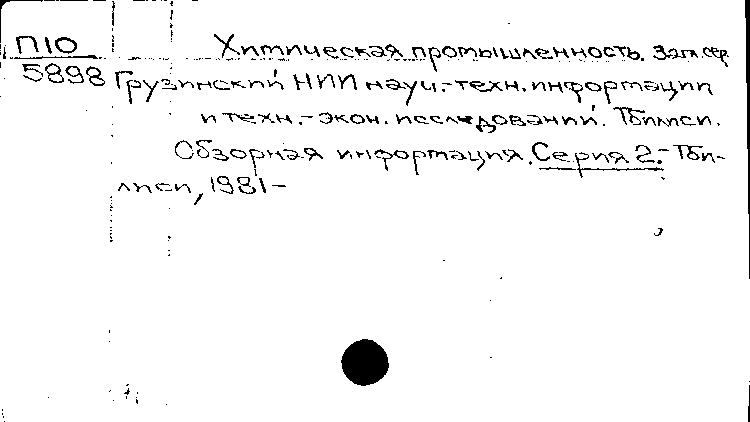 П10
5898
Химическая промышленность. Загл сер
Грузинский НИИ науч.-техн. информации
и техн.-экон. исследований. Тбилиси.
Обзорная информация. Серия 2.-Тби-
лиси, 1981-